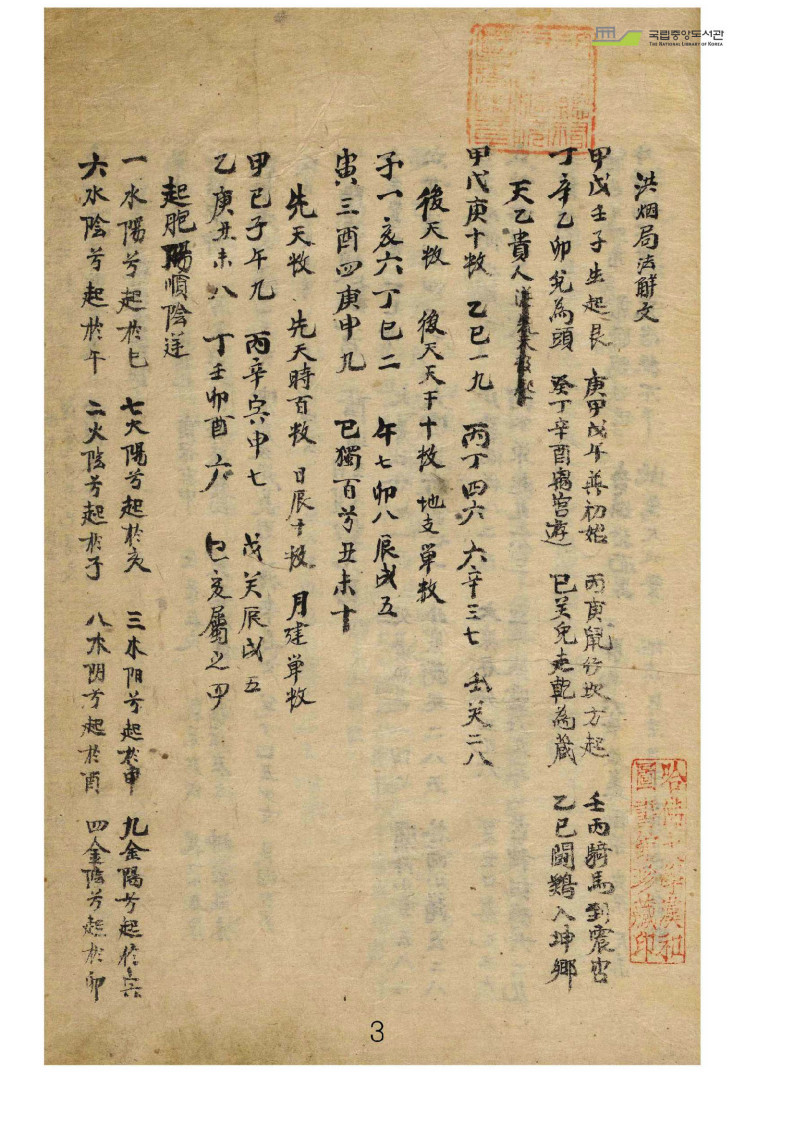 국립중앙도서관
THE NATIONAL LIBRARY OF KOREA
洪烟局法解文
甲戊壬子生起艮 庚甲戊午巽初始 丙庚鼠兮坎方起 壬丙騎馬到震宮
丁辛乙卯兌為頭 癸丁辛酉离宮遊 己癸兔走乾為蔵 乙巳鬪鷄入坤鄉
天乙貴人
甲戊庚十数 乙巳一九 丙丁四六 六辛三七 壬癸二八
後天数 後天天干十数 地支單数
子一亥六丁巳二 午七卯八辰戌五
寅三酉四庚申九 己獨百兮丑未十
先天数 先天時百数 日辰十数 月建単数
甲己子午九 丙辛寅申七 戊癸辰戌五
乙庚丑未八 丁壬卯酉六 巳亥屬之四
起胞陽順陰逆
一水陽兮起於巳 七火陽兮起於亥 三木阳兮起於申 九金陽兮起於寅
六水陰兮起於午 二火陰兮起於子 八木阴兮起於酉 四金陰兮起於卯
哈佛大學漢和
圖書館珍藏印
3